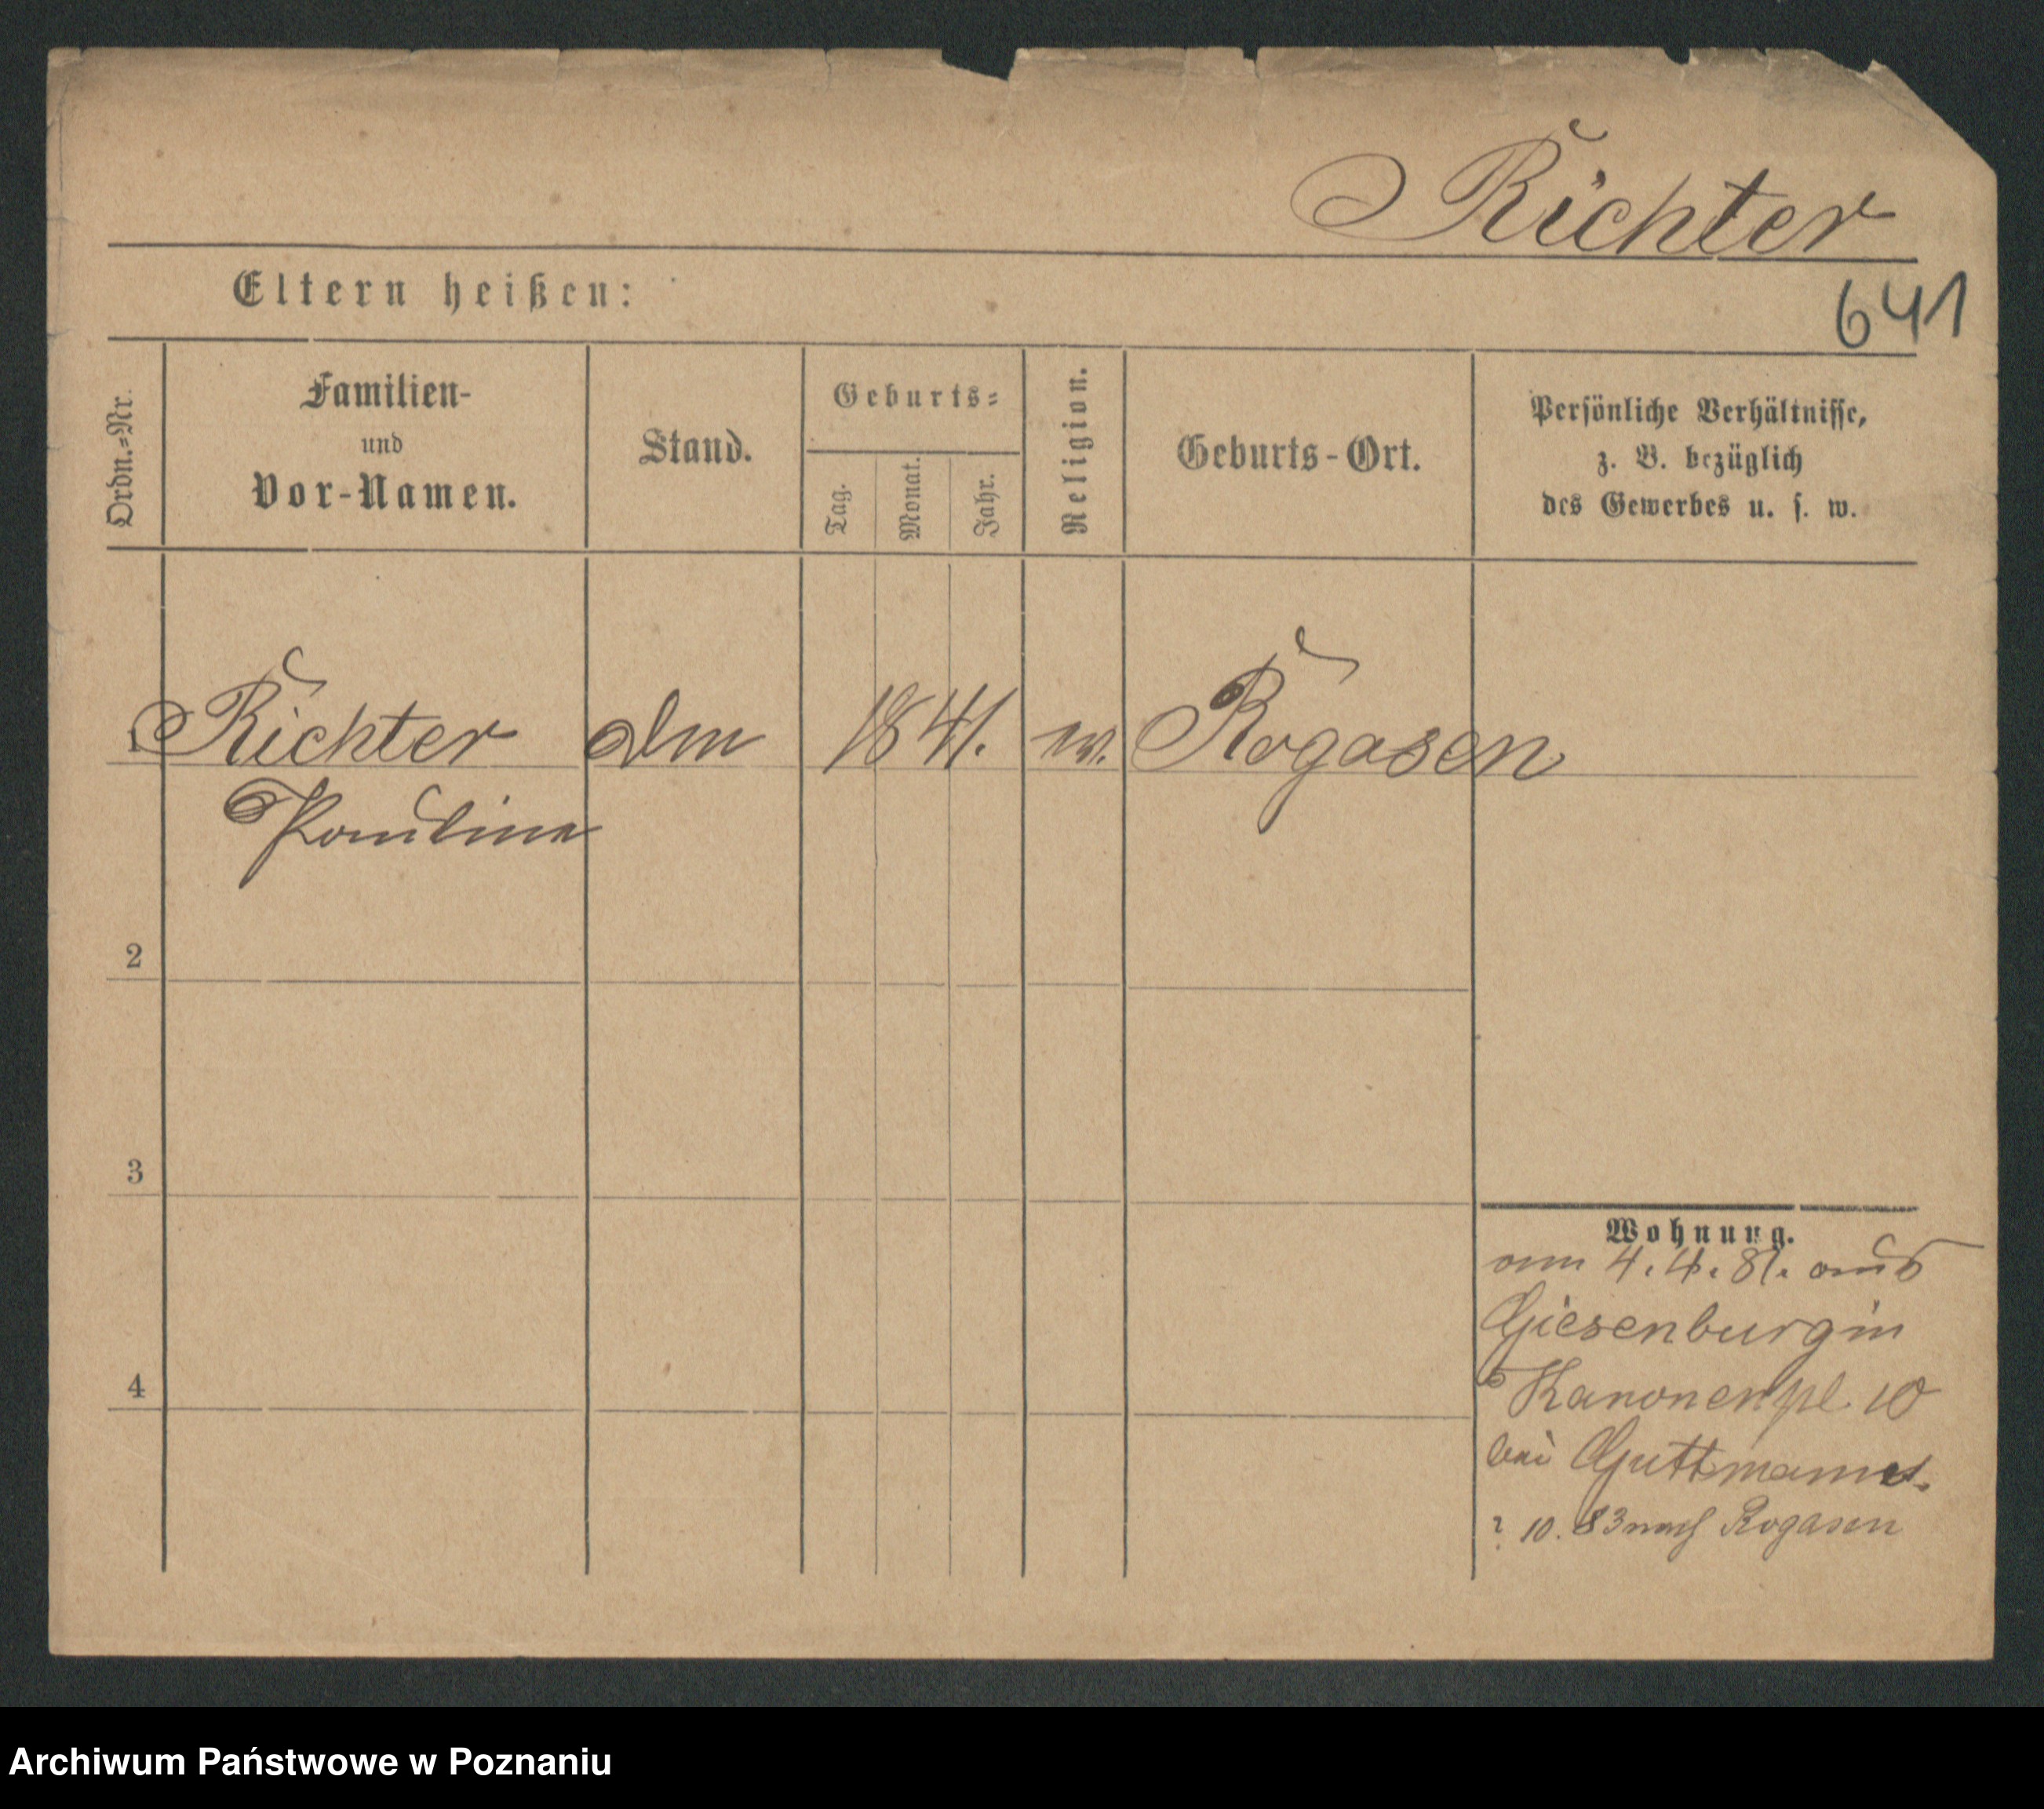 Richter
641
Eltern heißen:
Ordn.=Nr.
Familien-
und
Vor-Namen.
Stand.
Geburts=
Tag.
Monat.
Jahr.
Religion.
Geburts-Ort.
Persönliche Verhältnisse,
z. B. bezüglich
des Gewerbes u. s. w.
1 Richter 1841. Rogasen
Pauline
2
3
4
Wohnung.
am 4. 4. 81. aus
Giesenburg in
Kanonenpl. 10
bei Guttmann
? 10. 83 nach Rogasen
Archiwum Państwowe w Poznaniu